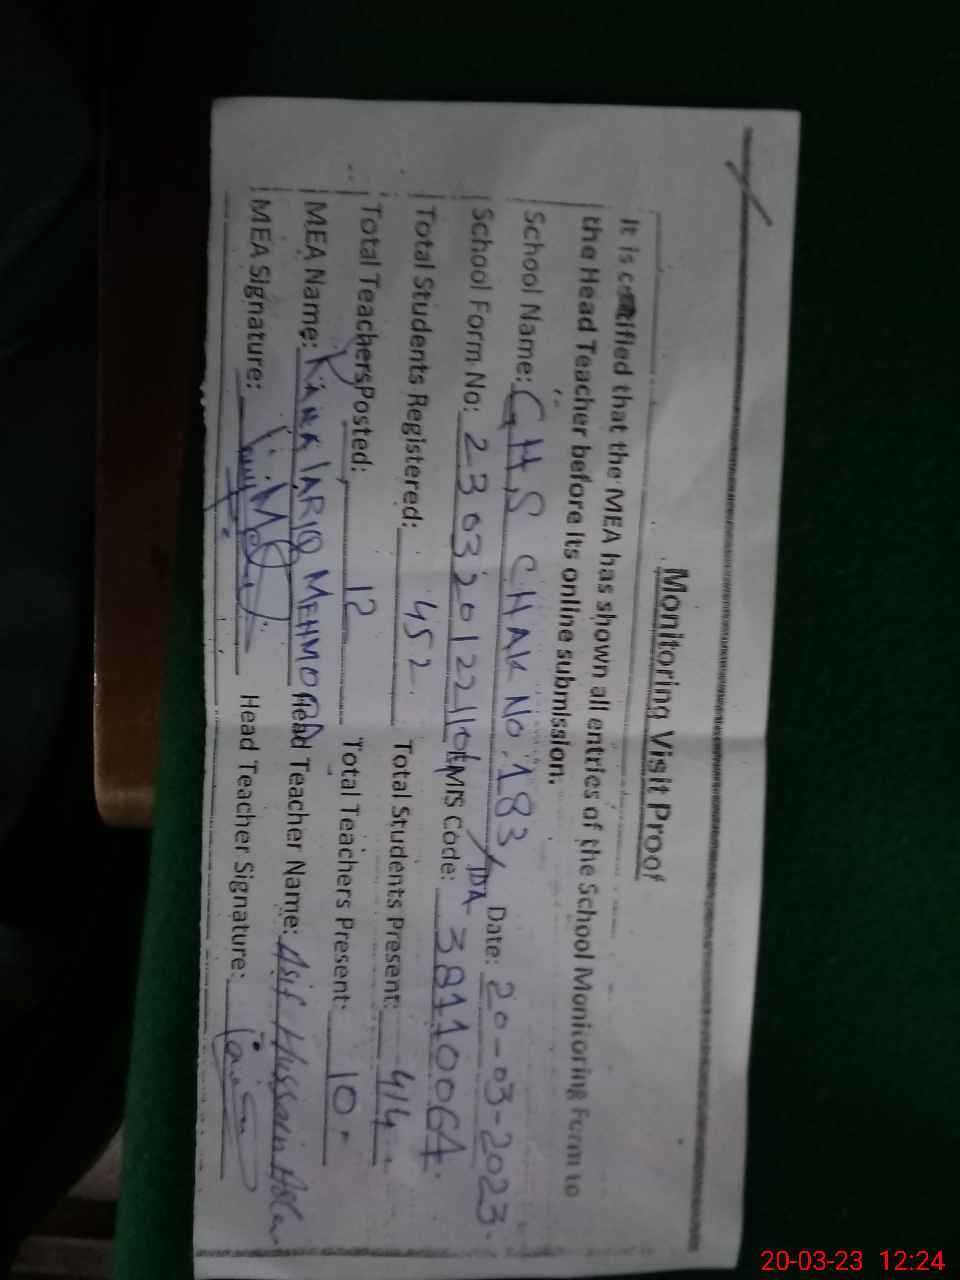 Monitoring Visit Proof
It is certified that the MEA has shown all entries of the School Monitoring Form to
the Head Teacher before its online submission.
School Name: GHS CHAK NO. 183/TDA Date: 20-03-2023.
School Form No: 23032012210 EMIS Code: 38110064.
Total Students Registered: 452. Total Students Present: 414
Total Teachers Posted: 12 Total Teachers Present: 10
MEA Name: RANA TARIQ MEHMOOD Head Teacher Name: Asif Hussain
MEA Signature: Head Teacher Signature:
20-03-23 12:24